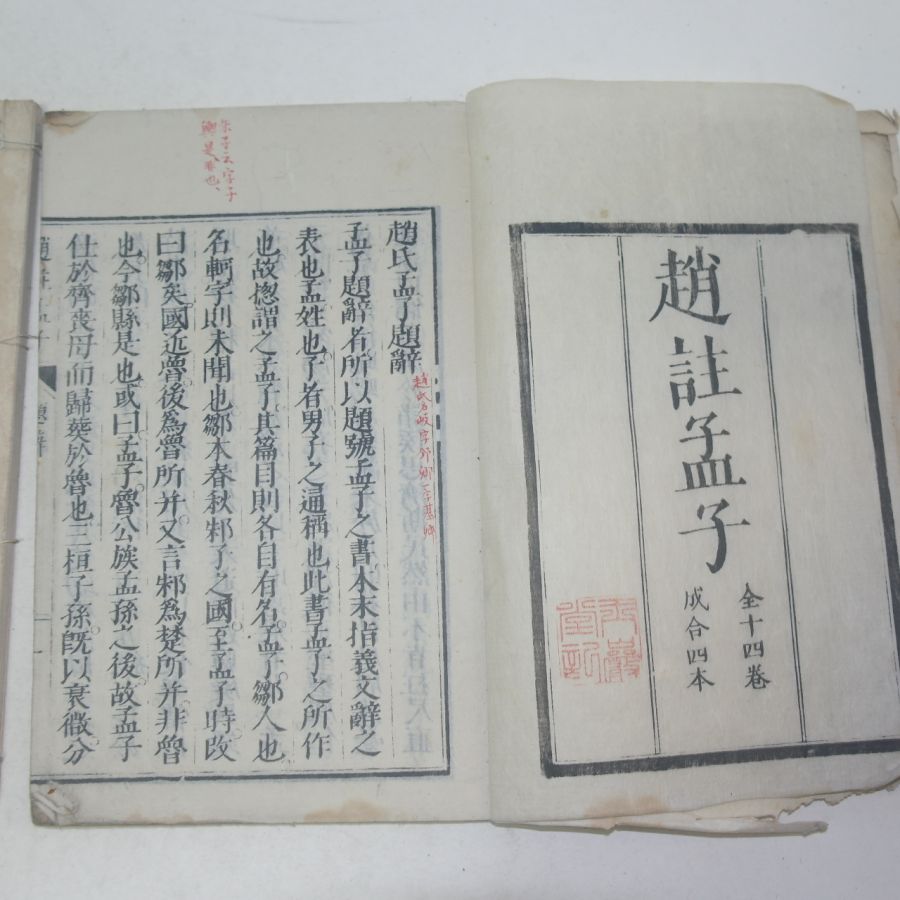 趙註孟子
全十四卷
成合四本
趙氏孟子題辭
孟子題辭者所以題號孟子之書本末指義文辭之
表也孟姓也子者男子之通稱也此書孟子之所作
也故揔謂之孟子其篇目則各自有名孟子鄒人也
名軻字則未聞也鄒本春秋邾子之國至孟子時改
曰鄒矣國近魯後爲魯所并又言邾爲楚所并非魯
也今鄒縣是也或曰孟子魯公族孟孫之後故孟子
仕於齊喪母而歸葬於魯也三桓子孫旣以衰微分
朱子云字子
題辭